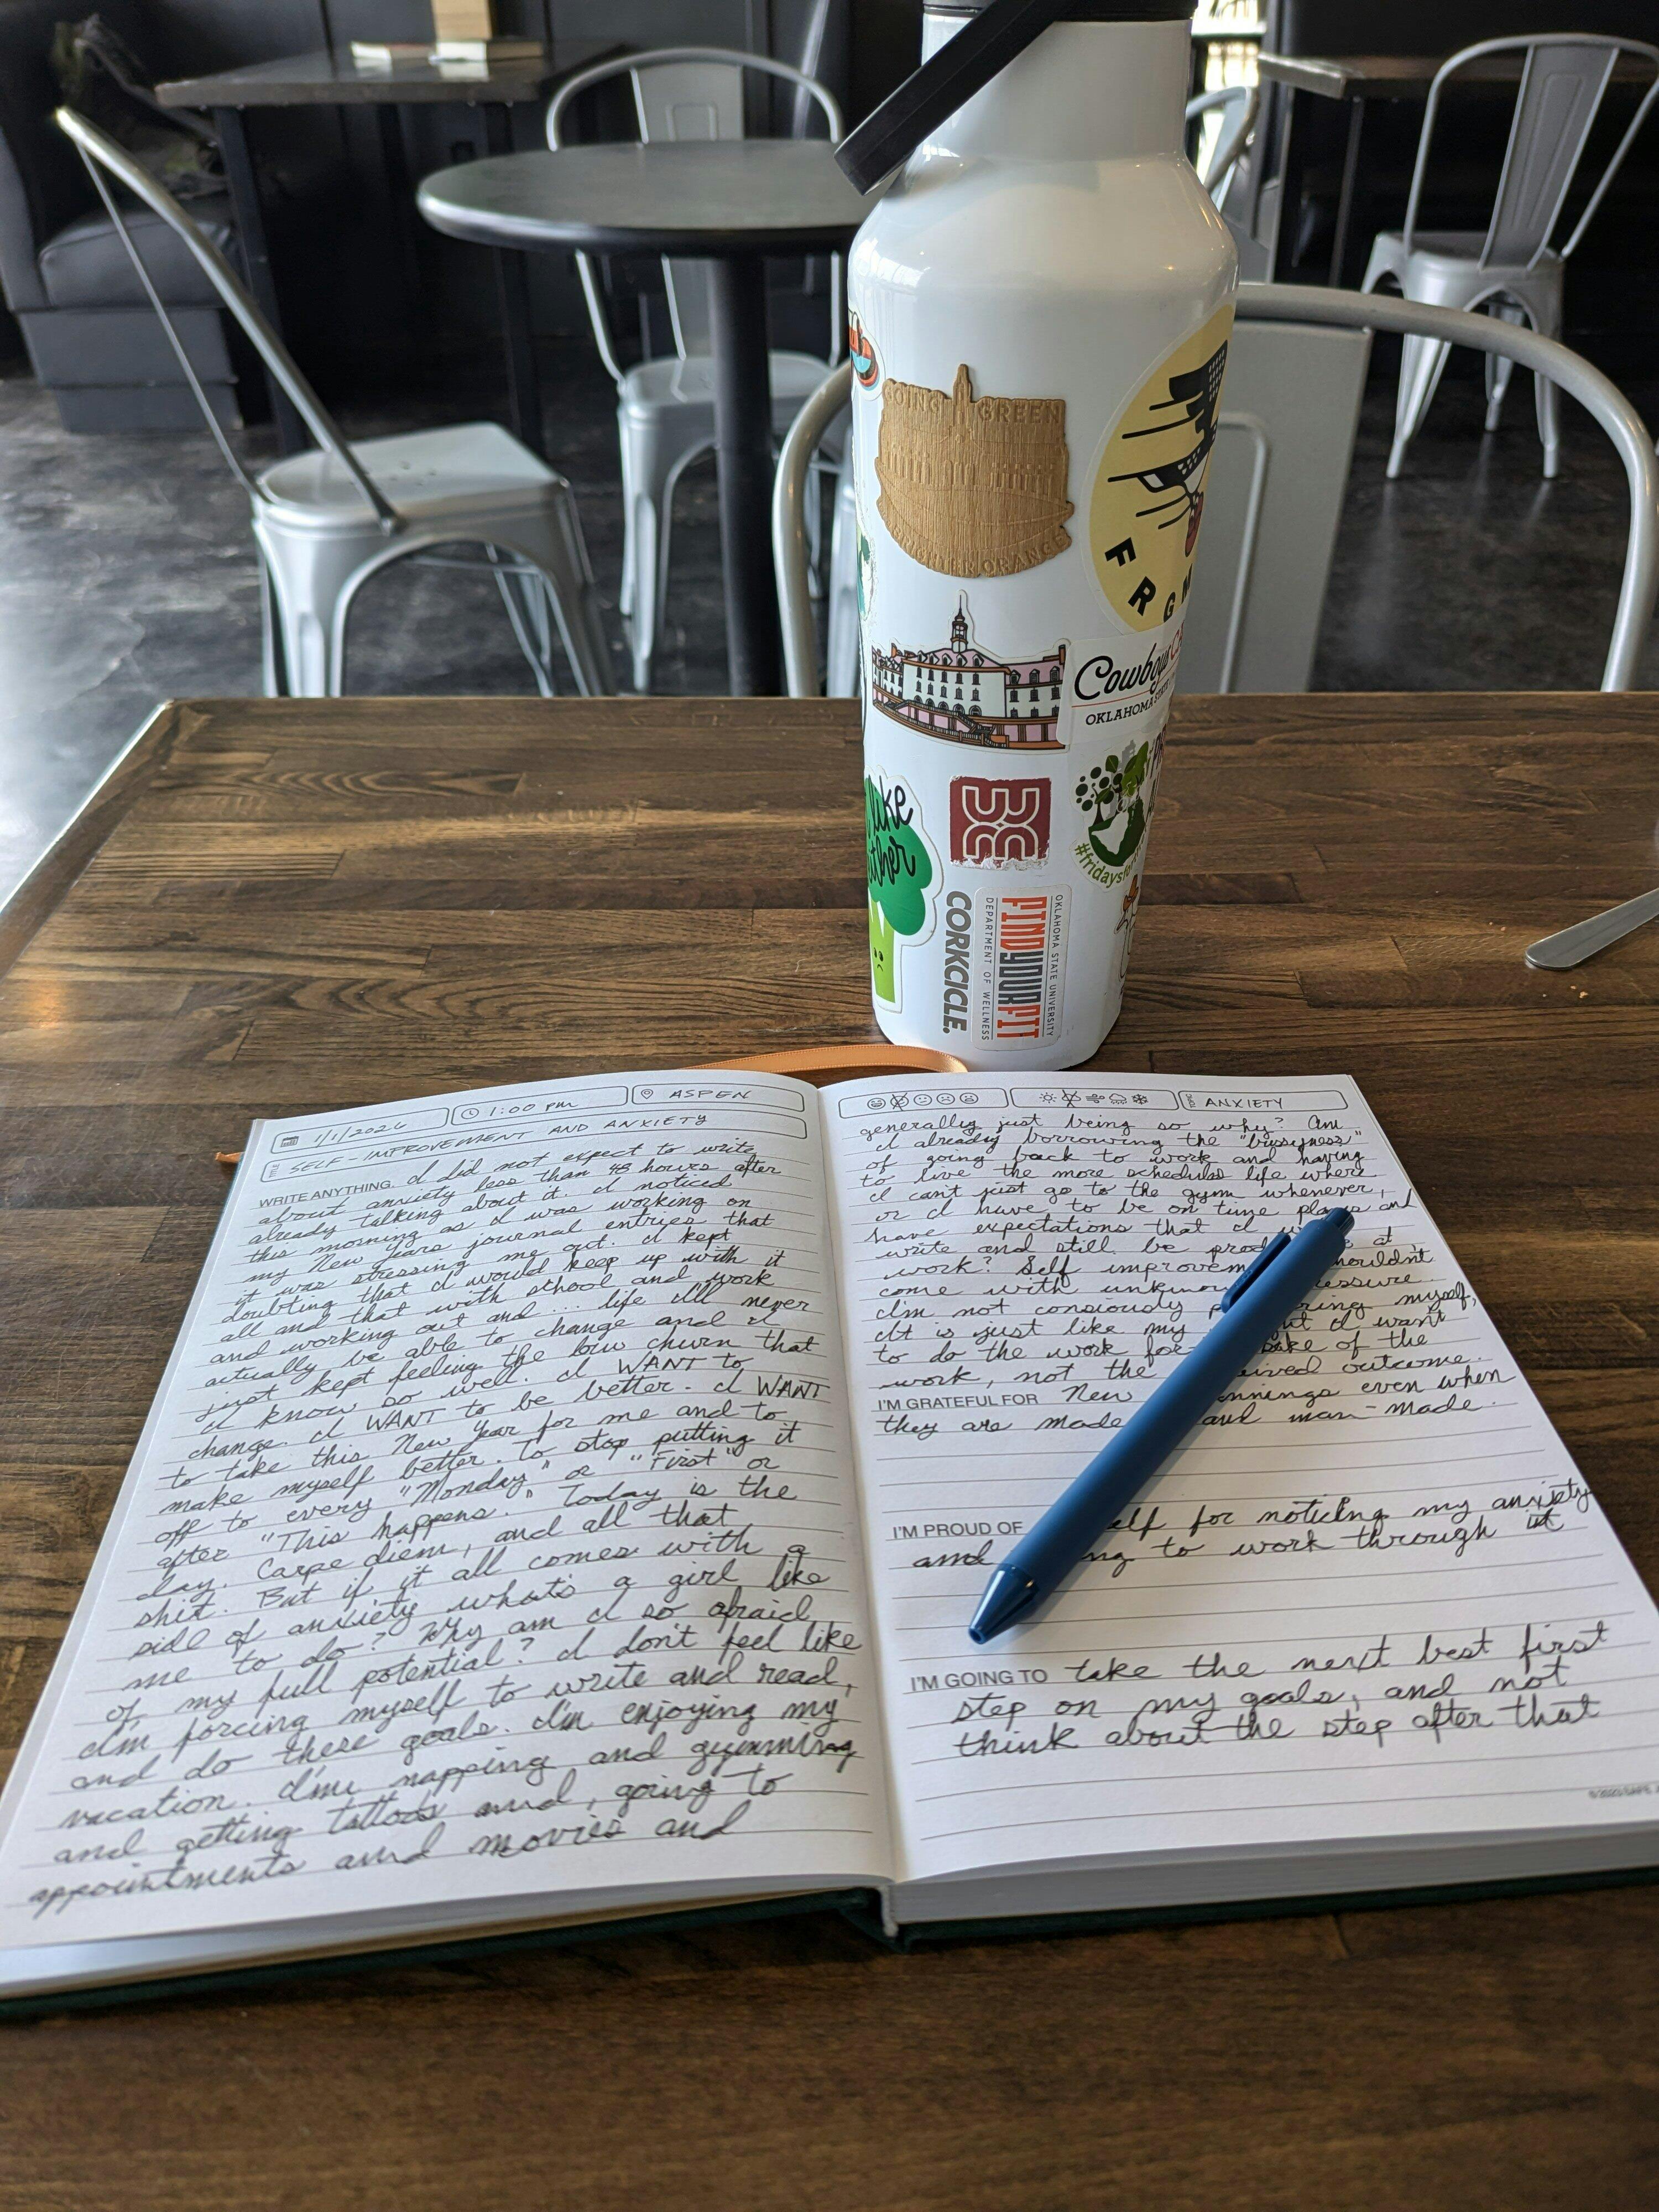 GOING GREEN
BRIGHTER ORANGE
FRGM
Cowboy
OKLAHOMA STATE
like
either
#fridaysfor
OKLAHOMA STATE UNIVERSITY
FINDYOURFIT
DEPARTMENT OF WELLNESS
CORKCICLE.
1/1/2026
1:00 pm
ASPEN
SELF-IMPROVEMENT AND ANXIETY
WRITE ANYTHING. I did not expect to write
about anxiety less than 48 hours after
already talking about it. I noticed
this morning as I was working on
my New Years journal entries that
it was stressing me out. I kept
doubting that I would keep up with it
all and that with school and work
and working out and ... life I'll never
actually be able to change and I
just kept feeling the low churn that
I know so well. I WANT to
change. I WANT to be better. I WANT
to take this New Year for me and to
make myself better. To stop putting it
off to every "Monday" or "First" or
after "This happens." Today is the
day. Carpe diem, and all that
shit. But if it all comes with a
side of anxiety what's a girl like
me to do? Why am I so afraid
of my full potential? I don't feel like
I'm forcing myself to write and read,
and do these goals. I'm enjoying my
vacation. I'm napping and gymming
and getting tattoos and, going to
appointments and movies and
ANXIETY
generally just being so why? Am
I already borrowing the "busyness"
of going back to work and having
to live the more scheduled life where
I can't just go to the gym whenever,
or I have to be on time places and
have expectations that I
write and still be prod at
work? Self improvem shouldn't
come with unknown pressure.
I'm not consciously p ring myself,
It is just like my but I want
to do the work for sake of the
work, not the ived outcome.
I'M GRATEFUL FOR New nnings even when
they are made and man-made.
I'M PROUD OF elf for noticing my anxiety
and ng to work through it
I'M GOING TO take the next best first
step on my goals, and not
think about the step after that